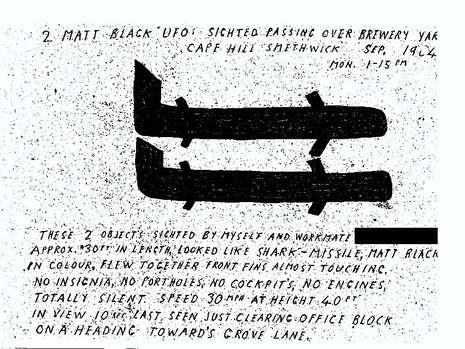 2 MATT BLACK "UFO'S SIGHTED PASSING OVER BREWERY YAR
CAPE HILL SMETHWICK SEP, 19
MON. 1-15 PM
THESE 2 OBJECTS SIGHTED BY MYSELF AND WORKMATE
APPROX. *30FT IN LENGTH, LOOKED LIKE SHARK-MISSILE, MATT BLACK
IN COLOUR, FLEW TOGETHER FRONT FINS ALMOST TOUCHING.
NO INSIGNIA, NO PORTHOLES, NO COCKPITS, NO ENGINES,
TOTALLY SILENT SPEED 30 MPH AT HEIGHT 40 FT
IN VIEW 10 SEC LAST SEEN JUST CLEARING OFFICE BLOCK
ON A HEADING TOWARD'S GROVE LANE.